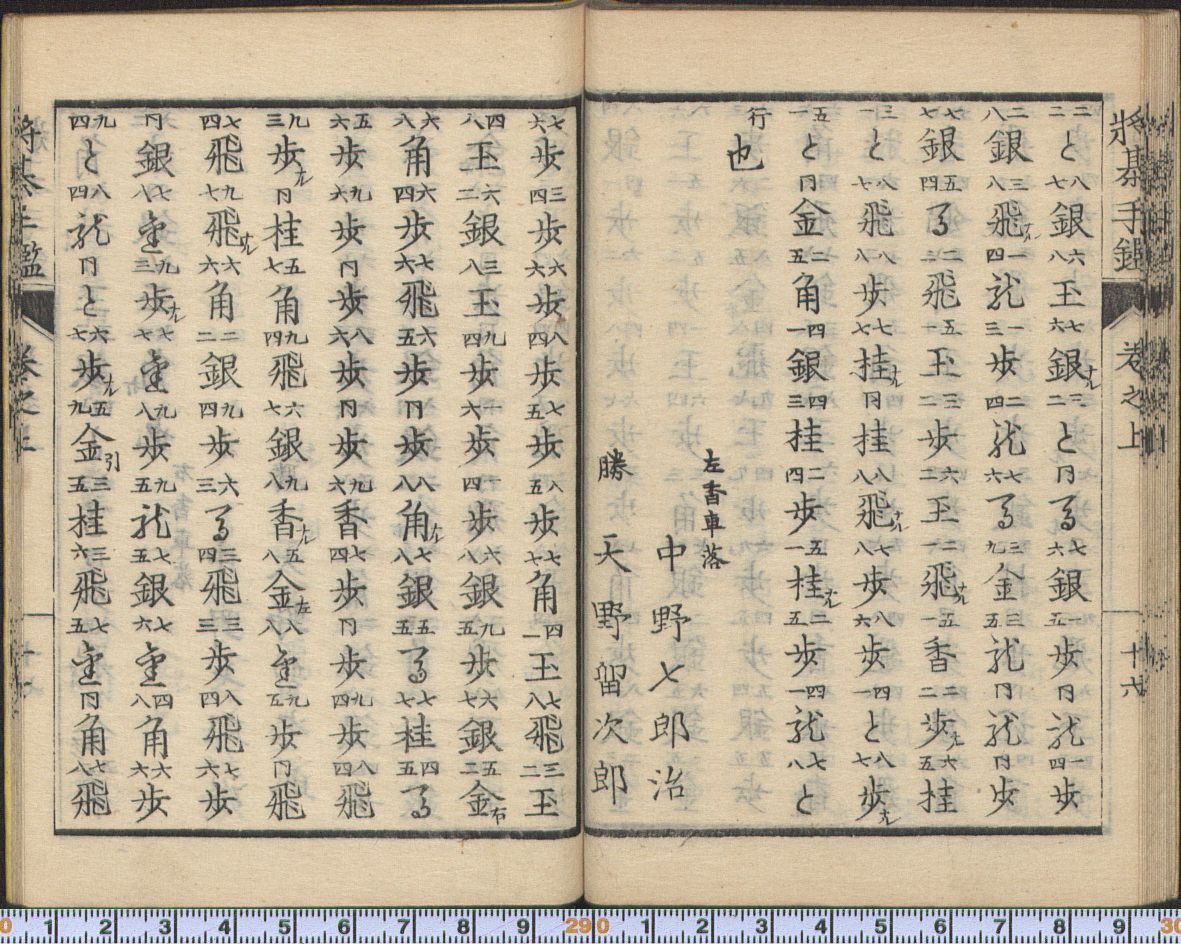 將棊手鑑　巻之上　十六
二二と八七銀六八王七六銀成三二と同馬七六銀一五歩同龍一四歩
二八銀三八飛成一四龍一三歩二四龍七六馬三九金三五龍同龍同歩
七七銀五四馬二二飛五一王三二歩六二王二一飛成五一香二二歩成六五桂
三一と八七飛八八歩七七桂成同桂八八飛成七八歩八六歩四一と八七歩成
五一と同金二五角四一銀四三桂二四歩五一桂成二五歩四一龍七八と
行也
左香車落
中野七郎治
勝　天野留次郎
七六歩三四歩六六歩八四歩七五歩八五歩七七角四一玉七八飛三二玉
四八玉六二銀三八玉九四歩一六歩一四歩六八銀九五歩六七銀五二金右
六八角六四歩七六飛六五歩同歩八八角成七八銀五五馬七七桂四五馬
五六歩九六歩同歩八六歩同歩九六香七四歩同歩九四歩八四飛
九三歩成同桂五七角九四飛六七銀九八香成五八金左八八杏九五歩同飛
七四飛九七飛成六六角二二銀九四歩六三馬三四飛三三歩八四飛七六歩
同銀七八杏九三歩成七七杏九八歩九五龍七五銀七六杏四八角六六歩
九四と八四龍同と六七歩成五九金引三五桂三六飛七五杏同角七八飛
將棊手鑑　巻之上